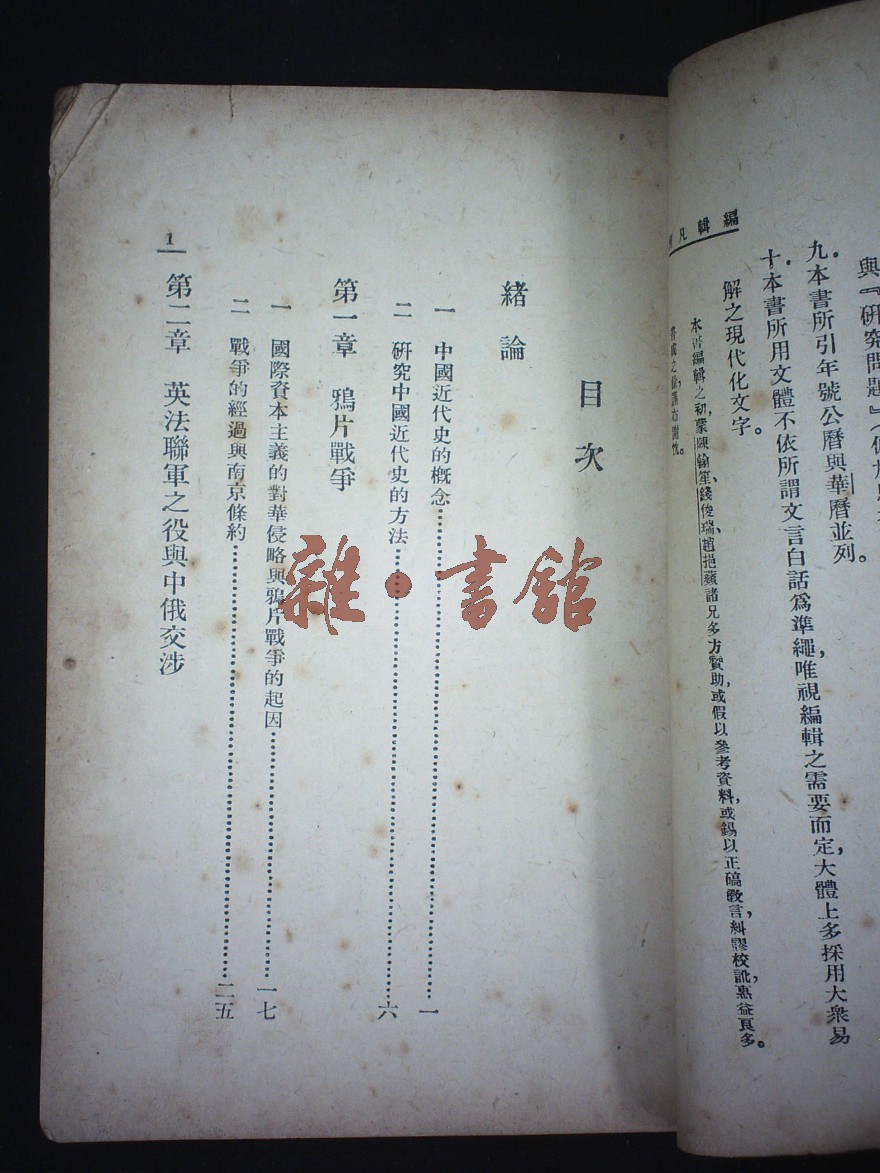 編輯凡
與『研究問題』
九．本書所引年號公曆與華曆並列。
十．本書所用文體不依所謂文言白話爲準繩，唯視編輯之需要而定，大體上多採用大衆易
解之現代化文字。
本書編輯之初，蒙陳翰笙、錢俊瑞、趙挹蘋諸兄多方贊助，或假以參考資料，或錫以正確敎言，糾謬校訛，惠益良多。
目次
緒論
一 中國近代史的概念……一
二 研究中國近代史的方法……六
第一章 鴉片戰爭
一 國際資本主義的對華侵略與鴉片戰爭的起因……一七
二 戰爭的經過與南京條約……二五
第二章 英法聯軍之役與中俄交涉
1
雜·書館